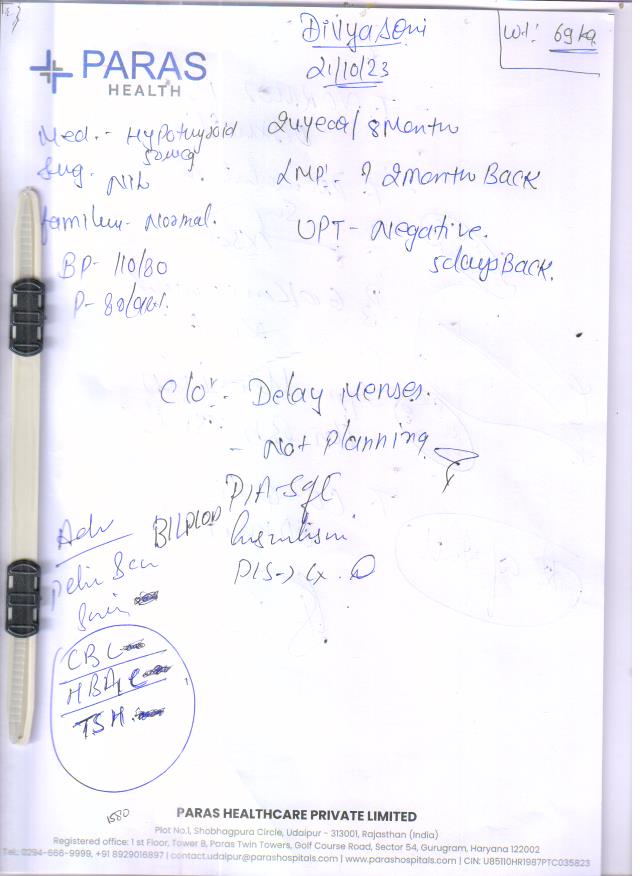 Divya Soni
Wt: 69 kg
21/10/23
PARAS
HEALTH
Med. - Hypothyroid
50mcg
24 year / 8 Month
Sug. Nil
LMP - ? 2 month Back
Family - Normal.
UPT - Negative.
5 days Back.
BP - 110/80
P - 80/
C/o - Delay Menses.
- Not Planning
P/A - Soft
Adv
Hirsutism
P/S -> Cx
CBC
HBA1C
TSH
1580
PARAS HEALTHCARE PRIVATE LIMITED
Plot No.1, Shobhagpura Circle, Udaipur - 313001, Rajasthan (India)
Registered office: 1 st Floor, Tower B, Paras Twin Towers, Golf Course Road, Sector 54, Gurugram, Haryana 122002
Tel: 0294-666-9999, +91 8929016897 | contact.udaipur@parashospitals.com | www.parashospitals.com | CIN: U85110HR1987PTC035823